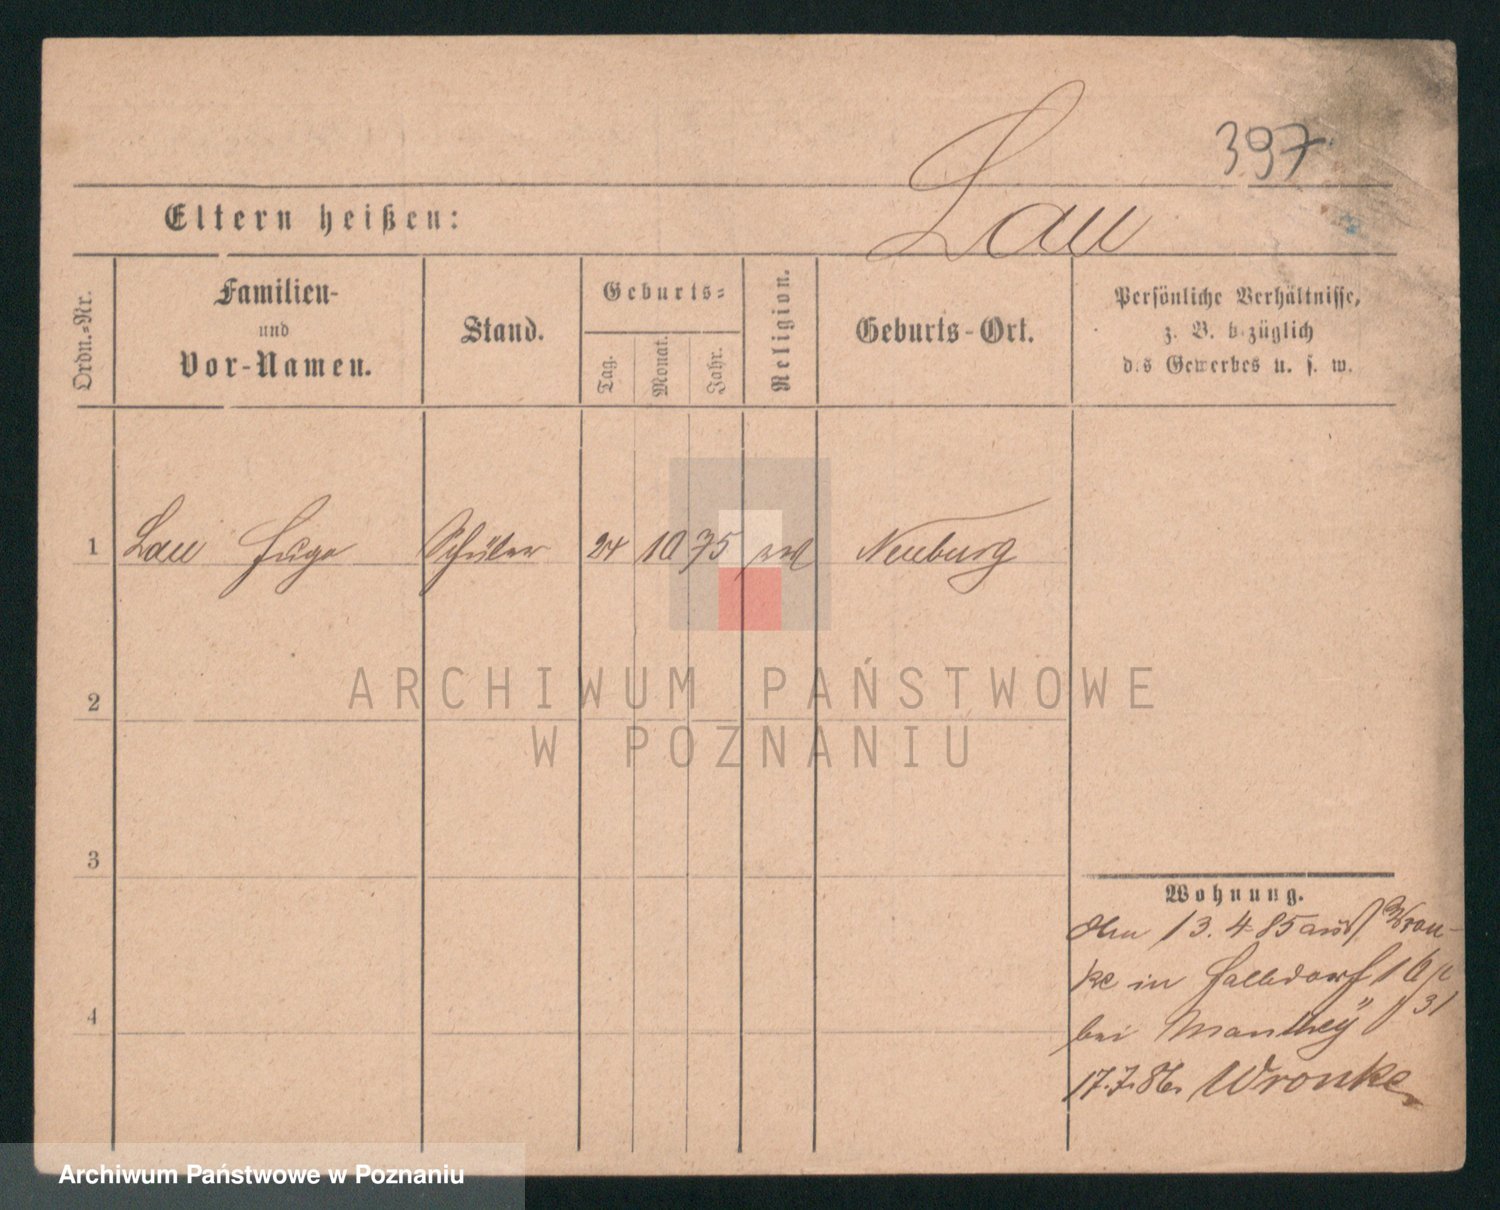 397
Lau
Eltern heißen:
Ordn.-Nr.
Familien-
und
Vor-Namen.
Stand.
Geburts-
Tag.
Monat.
Jahr.
Religion.
Geburts-Ort.
Persönliche Verhältnisse,
z. B. bezüglich
des Gewerbes u. s. w.
1 Lau Hugo Schüler 24 10 75 evl Neuburg
ARCHIWUM PAŃSTWOWE
W POZNANIU
2
3
4
Wohnung.
13. 4 85 aus Wron-
ke in Halbdorf 16
31
bei Manthey
17.7.86. Wronke
Archiwum Państwowe w Poznaniu